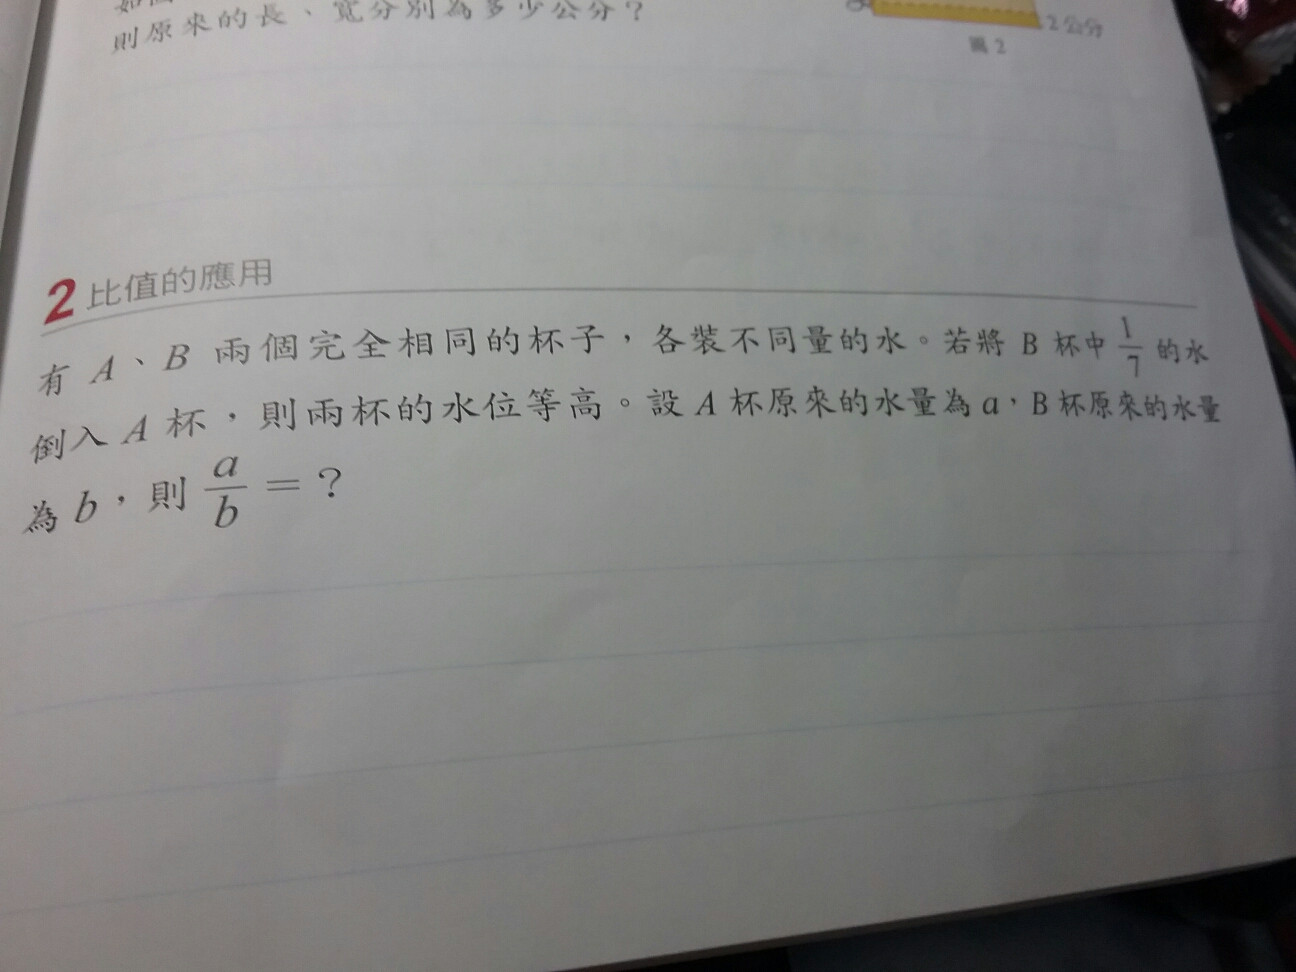 則原來的長、寬分別為多少公分？
2公分
圖2
2 比值的應用
有 A、B 兩個完全相同的杯子，各裝不同量的水。若將 B 杯中 1/7 的水
倒入 A 杯，則兩杯的水位等高。設 A 杯原來的水量為 a，B 杯原來的水量
為 b，則 a/b =？